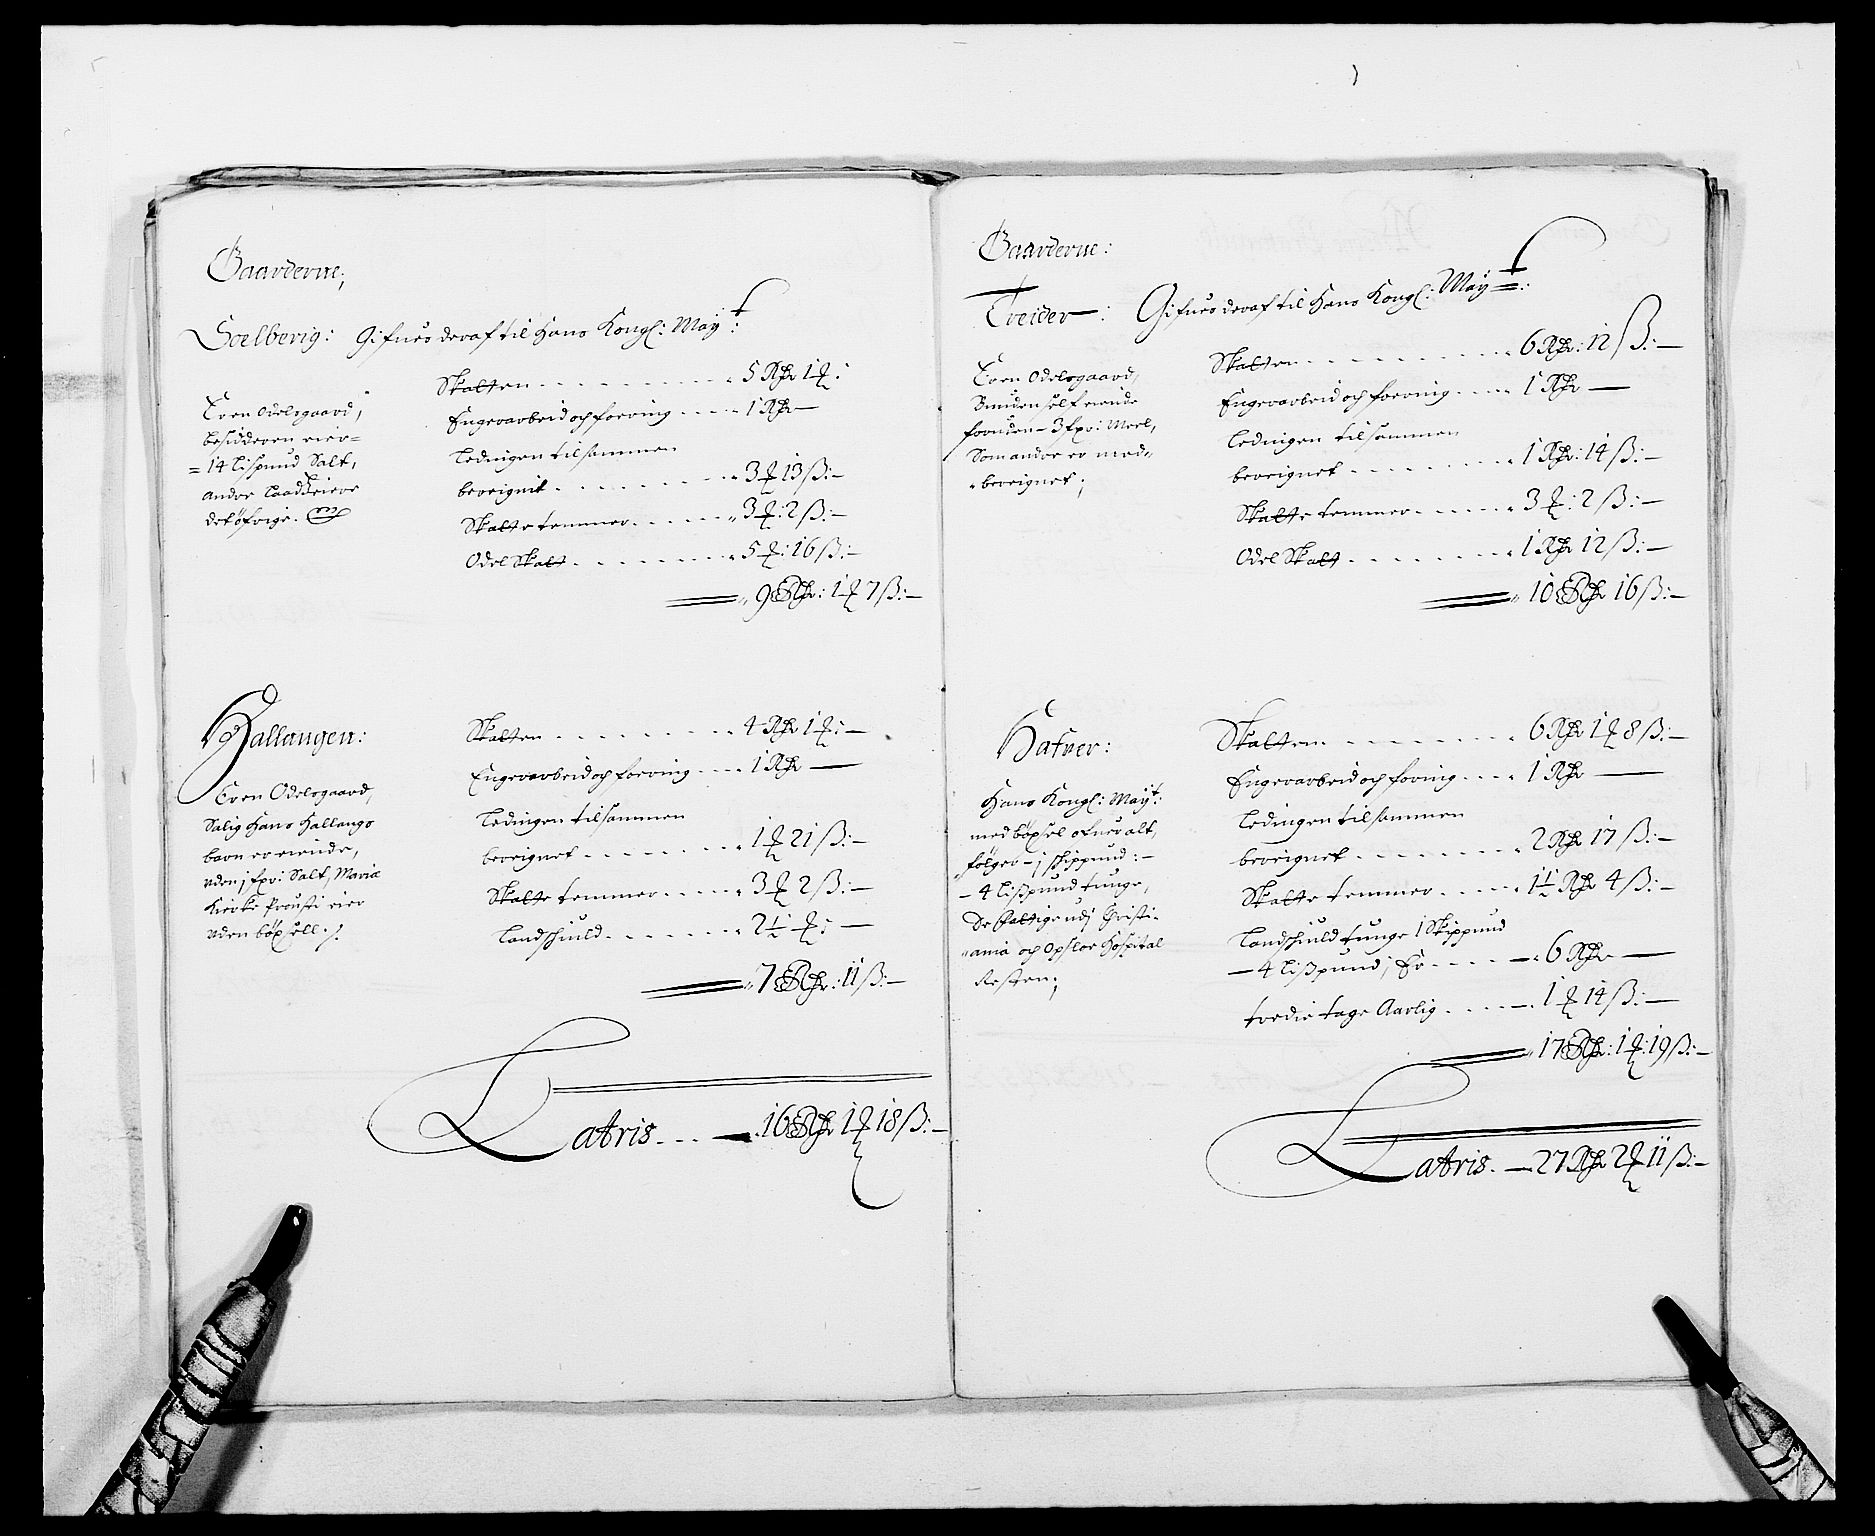 Gaarderne;
Soelberig: Gifues deraf til Hans Kongl: Mayt:
Er en Odelsgaard,
besidderen eier=
=14 Lispund Salt,
andre Laadzeiere
det øfrige.
Skatten . . . . . . . . 5 Rdr 1 ꝗ:
Engerarbeid och foering . . . . 1 Rdr —
Ledingen tilsammen
bereignit . . . . . . . . 3 ꝗ 13 ß:—
Skatte temmer . . . . . . 3 ꝗ: 2 ß:—
Odel Skatt . . . . . . . 5 ꝗ: 16 ß:—
9 Rdr: 1 ꝗ 7 ß:—
Hallangen:
Er en Odelsgaard,
Salig Hans Hallangs
børn er eiende,
uden j fxr: Salt, Maria
Kierke Prousti eier
uden bøxsell ./.
Skatten . . . . . . . . 4 Rdr 1 ꝗ: —
Engerarbeid och foering . . . . 1 Rdr —
Ledingen tilsammen
bereignet . . . . . . . . 1 ꝗ 21 ß:—
Skatte temmer . . . . . 3 ꝗ 2 ß:—
Landschuld . . . . . . . 2½ ꝗ: —
7 Rdr: 11 ß:—
Latris . . . — 16 Rdr 1 ꝗ 18 ß:—
Gaarderne:
Treider: Gifues deraf til Hans Kongl: Mayt:
Er en Odelsgaard,
Bunden self eiende
foruden – 3 fxr: Meel,
Som andre er med-
-bereignet;
Skatten . . . . . . . . 6 Rdr: 12 ß:—
Engerarbeid och foering . . . . 1 Rdr —
Ledingen tilsammen
bereignet . . . . . . . . 1 Rdr: 14 ß:—
Skatte temmer . . . . . 3 ꝗ: 2 ß:—
Odel Skatt . . . . . . . 1 Rdr 12 ß:—
10 Rdr 16 ß:—
Hafuer:
Hans Kongl: Mayt:
med bøxsel ofuer alt,
følger – j schippund:–
– 4 Lißpund tunge,
De fattige udj Christi-
-ania och Opsloe Hospital
Resten;
Skatten . . . . . . . . 6 Rdr 1 ꝗ 8 ß:—
Engerarbeid och foring . . . . 1 Rdr —
Ledingen tilsammen
bereignet . . . . . . . . 2 Rdr 17 ß:—
Skatte temmer . . . . . 1½ Rdr 4 ß:—
Landschuld tunge 1 Skippund
– 4 Lißpund, Er . . . . — 6 Rdr —
tredie tage Aarlig . . . . — 1 ꝗ 14 ß:—
17 Rdr: 1 ꝗ: 19 ß:—
Latris . — 27 Rdr 2 ꝗ 11 ß:—